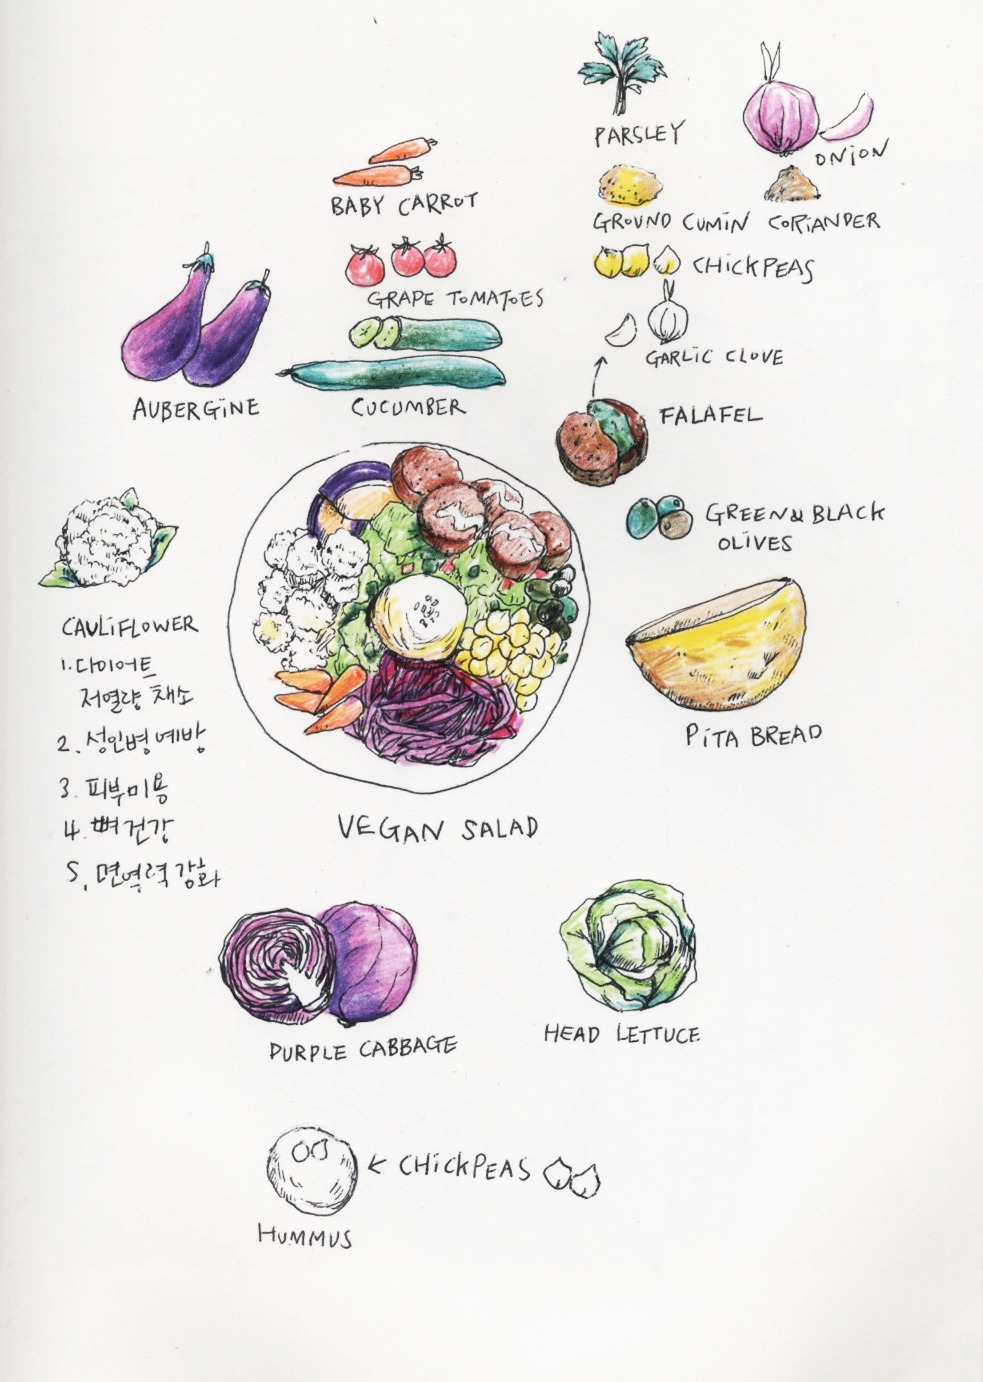 PARSLEY
ONION
BABY CARROT
GROUND CUMIN
CORIANDER
CHICKPEAS
GRAPE TOMATOES
GARLIC CLOVE
AUBERGINE
CUCUMBER
FALAFEL
GREEN & BLACK
OLIVES
CAULIFLOWER
1. 다이어트
저열량 채소
2. 성인병 예방
3. 피부미용
4. 뼈 건강
5. 면역력 강화
PITA BREAD
VEGAN SALAD
PURPLE CABBAGE
HEAD LETTUCE
CHICKPEAS
HUMMUS